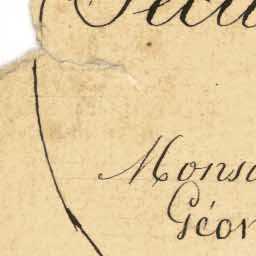 Secu
Monsi
Géor